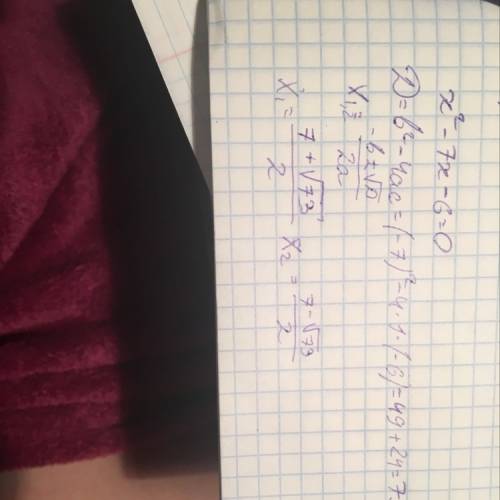 x² - 7x - 6 = 0
D = b² - 4ac = (-7)² - 4·1·(-6) = 49 + 24 = 7
x₁,₂ = (-b ± √D) / 2a
x₁ = (7 + √73) / 2 x₂ = (7 - √73) / 2